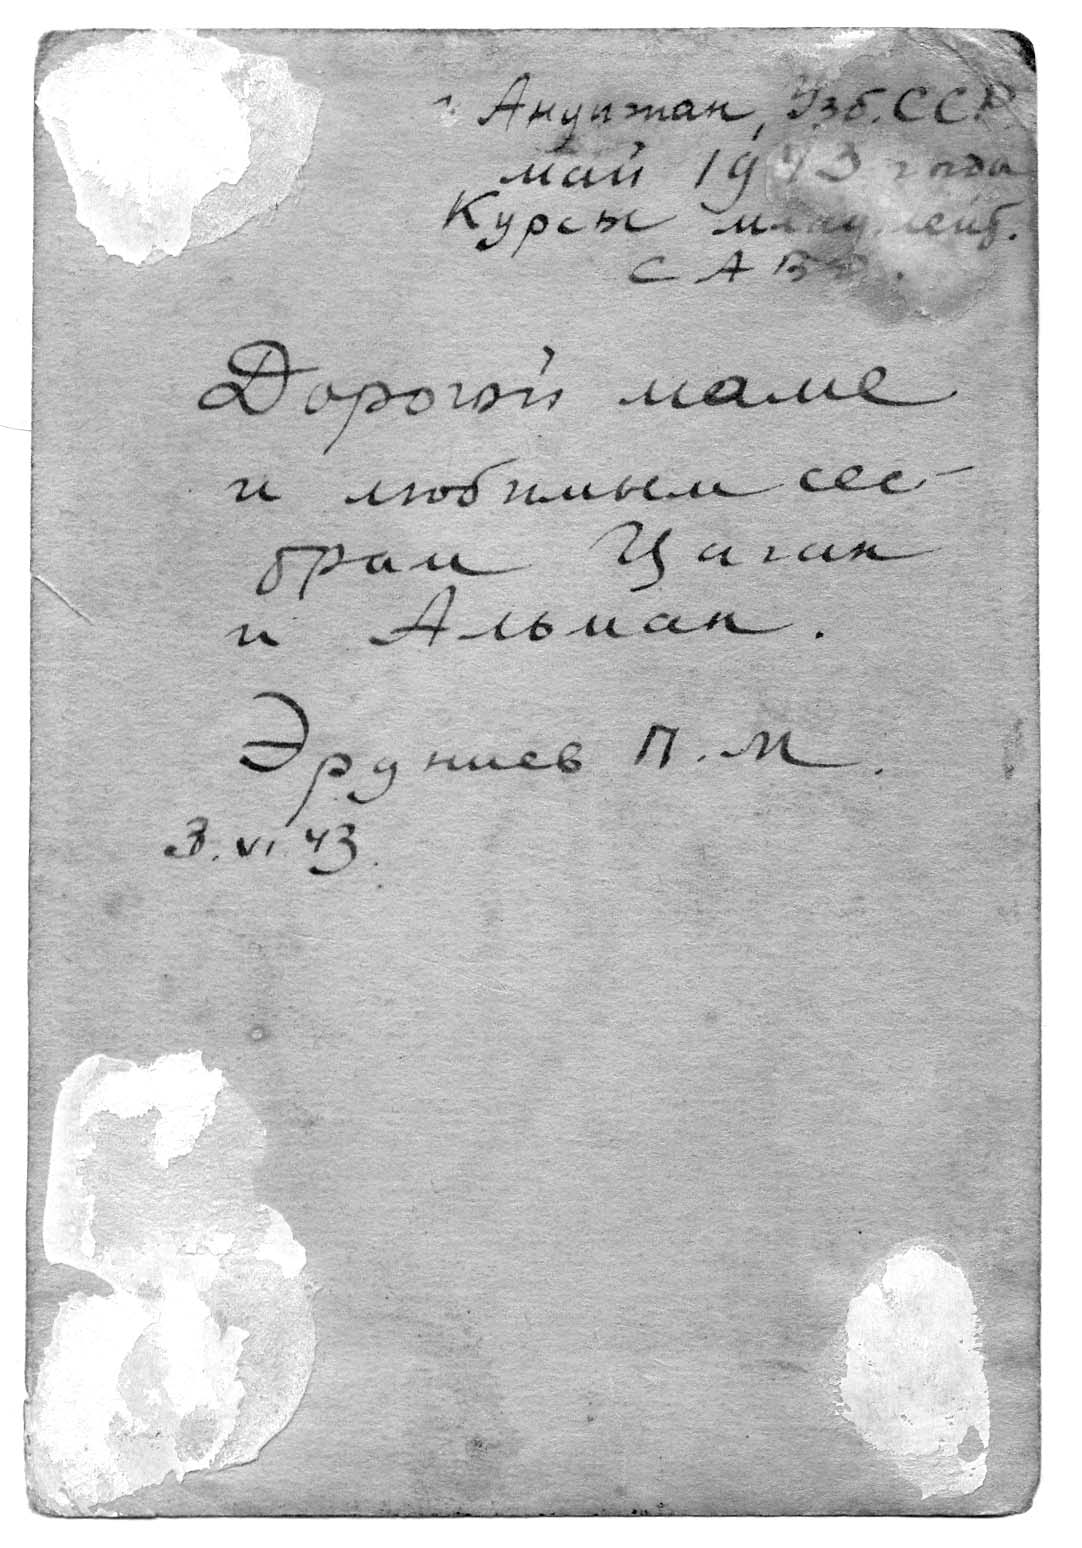 г. Андижан, Узб. ССР.
май 1943 года
Курсы млад. лейт.
САВО.
Дорогой маме
и любимым сес-
трам Цаган
и Альман.
Эрдниев П. М.
3. VI. 43.